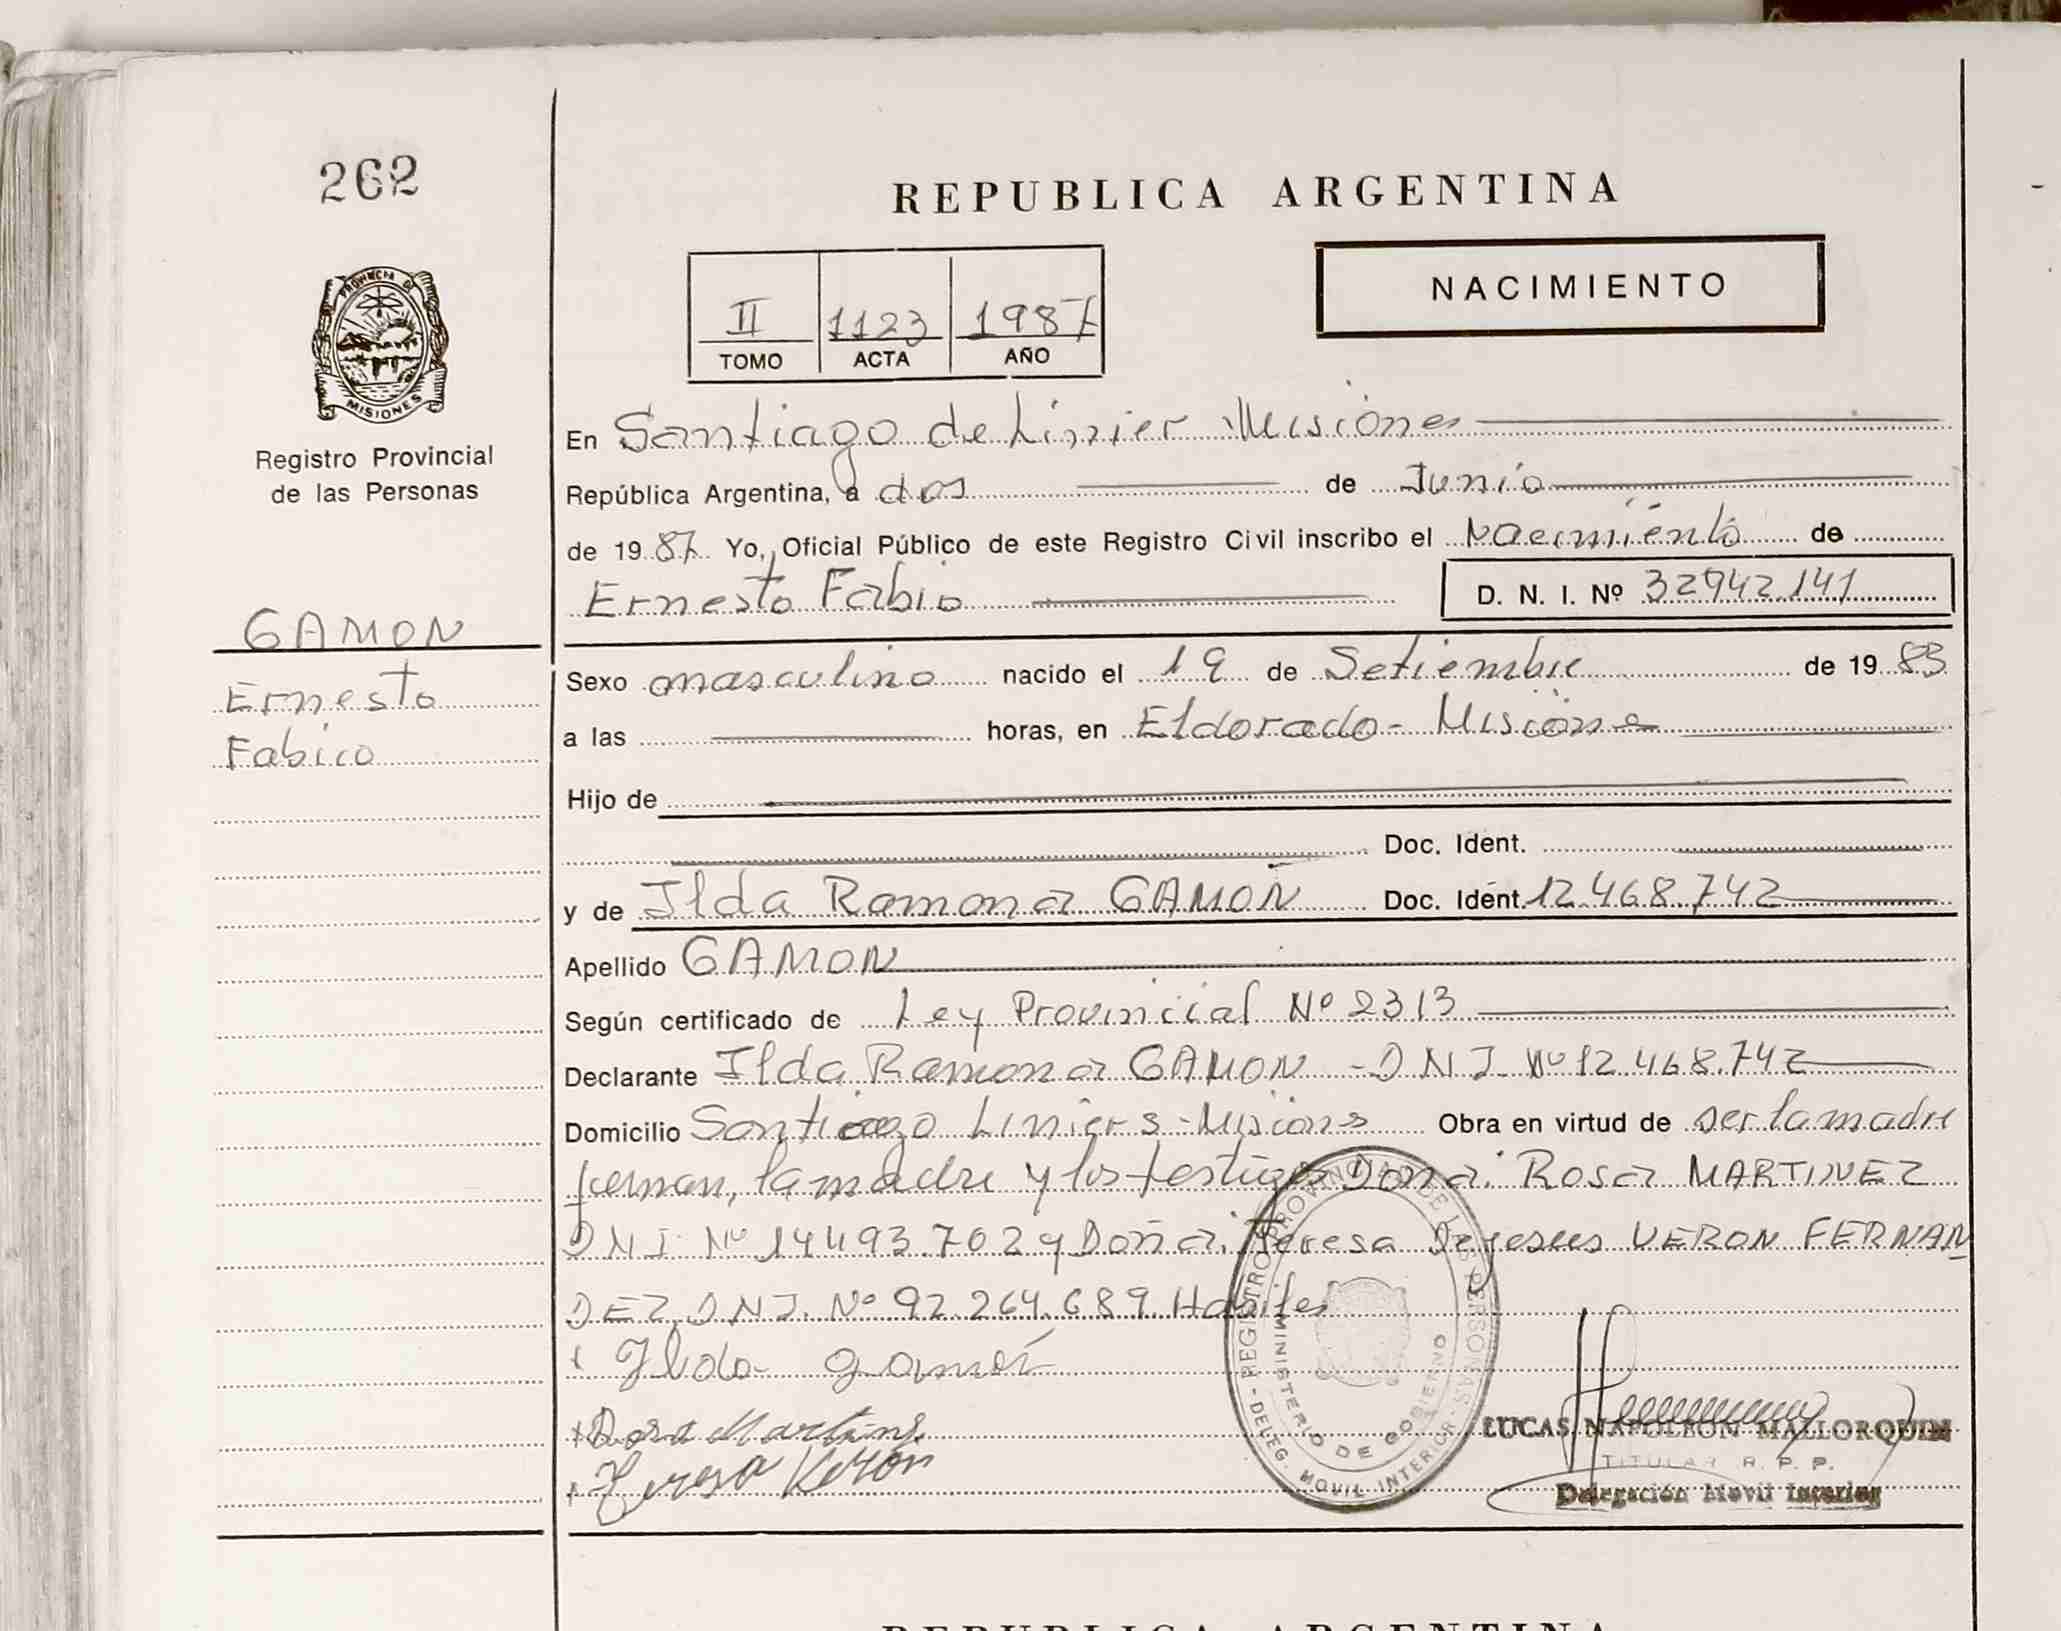 262
REPUBLICA ARGENTINA
II 1123 1987
TOMO ACTA AÑO
NACIMIENTO
PROVINCIA DE
MISIONES
Registro Provincial
de las Personas
En Santiago de Linier Misiones
República Argentina, a dos de Junio
de 1987 Yo, Oficial Público de este Registro Civil inscribo el Nacimiento de
Ernesto Fabio D. N. I. Nº 32942141
GAMON
Ernesto
Fabico
Sexo masculino nacido el 19 de Setiembre de 1983
a las horas, en Eldorado - Misiones
Hijo de
Doc. Ident.
y de Ilda Ramona GAMON Doc. Ident. 12.468.742
Apellido GAMON
Según certificado de Ley Provinicial Nº 2313
Declarante Ilda Ramona GAMON - D N I Nº 12.468.742
Domicilio Santiago Liniers - Misiones Obra en virtud de ser la madre
firman, la madre y los testigos Dona Rosa MARTINEZ
DNI Nº 14493.702 y Doña Teresa De Jesus VERON FERNAN
DEZ DNI. Nº 92.264.689 Habiles
x Ilda Gamón
x Rosa Martines
x Teresa Verón
REGISTRO PROVINCIAL DE LAS PERSONAS - DELEG. MOVIL INTERIOR -
MINISTERIO DE GOBIERNO
LUCAS NAPOLEON MALLORQUIN
TITULAR R. P. P.
Delegación Movil Interior
REPUBLICA ARGENTINA